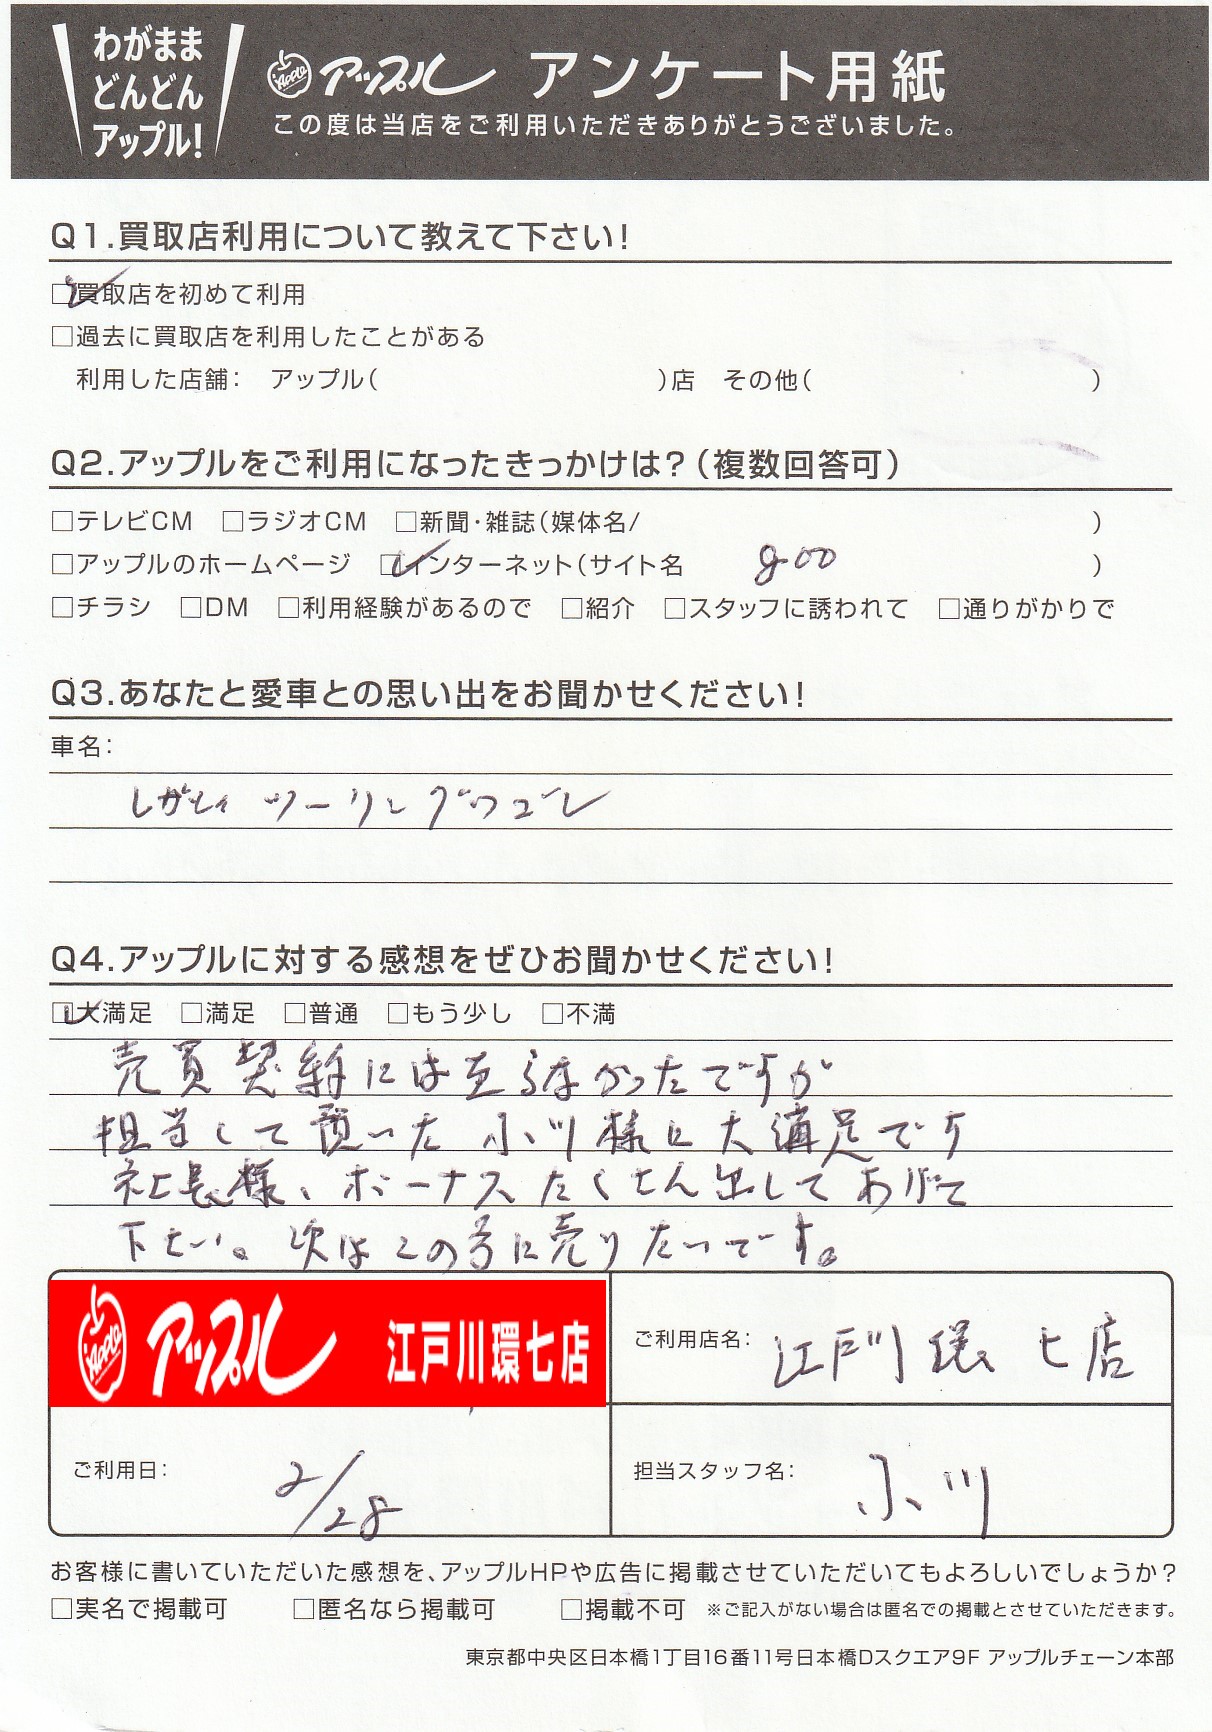 わがまま
どんどん
アップル!
Apple アップル アンケート用紙
この度は当店をご利用いただきありがとうございました。
Q1.買取店利用について教えて下さい!
□買取店を初めて利用
□過去に買取店を利用したことがある
利用した店舗: アップル( )店 その他( )
Q2.アップルをご利用になったきっかけは?(複数回答可)
□テレビCM □ラジオCM □新聞・雑誌(媒体名/ )
□アップルのホームページ □インターネット(サイト名 goo )
□チラシ □DM □利用経験があるので □紹介 □スタッフに誘われて □通りがかりで
Q3.あなたと愛車との思い出をお聞かせください!
車名:
レガシィ ツーリングワゴン
Q4.アップルに対する感想をぜひお聞かせください!
□大満足 □満足 □普通 □もう少し □不満
売買契約には至らなかったですが
担当して頂いた小川様に大満足です
社長様、ボーナスたくさん出してあげて
下さい。次はこの方に売りたいです。
Apple アップル 江戸川環七店
ご利用店名: 江戸川環七店
ご利用日: 2/28
担当スタッフ名: 小川
お客様に書いていただいた感想を、アップルHPや広告に掲載させていただいてもよろしいでしょうか?
□実名で掲載可 □匿名なら掲載可 □掲載不可 ※ご記入がない場合は匿名での掲載とさせていただきます。
東京都中央区日本橋1丁目16番11号日本橋Dスクエア9F アップルチェーン本部